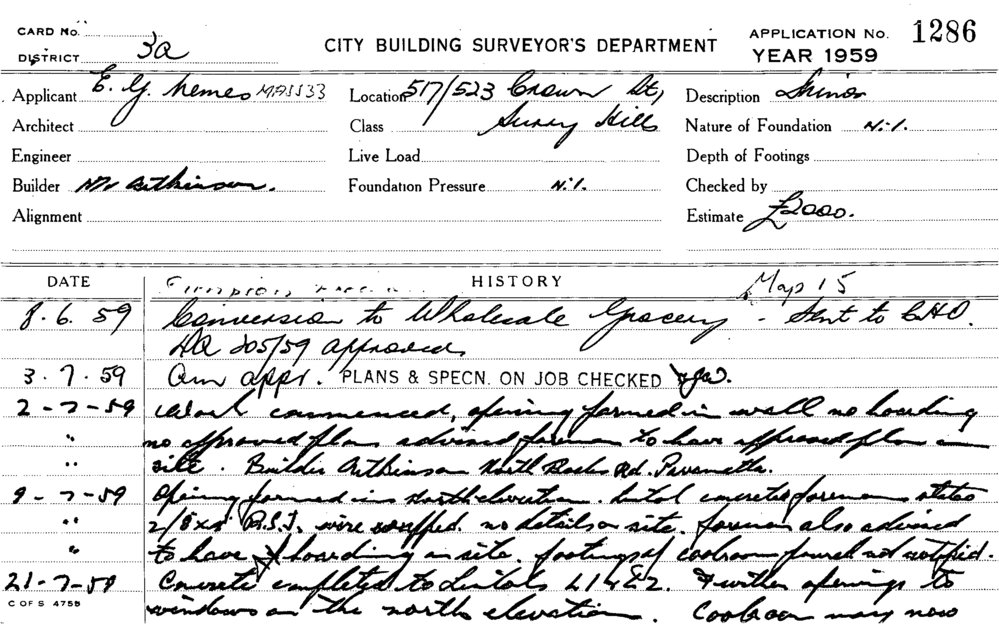 CARD No.
DISTRICT 3a
CITY BUILDING SURVEYOR'S DEPARTMENT
APPLICATION No. 1286
YEAR 1959
Applicant E. G. Nemes MA1533
Location 517/523 Crown St,
Description Minor
Architect
Class Surry Hills
Nature of Foundation Nil.
Engineer
Live Load
Depth of Footings
Builder Mr Aitkinson.
Foundation Pressure Nil.
Checked by
Alignment
Estimate £2000.
DATE
HISTORY
Map 15
8.6.59 Conversion to Wholesale Grocery - Sent to CHO.
DA 205/59 approved
3.7.59 Om appr. PLANS & SPECN. ON JOB CHECKED
2-7-59 Work commenced, opening formed in wall no hoarding
" no approved plan advised foreman to have approved plan on
" site. Builder Aitkinson North Rocks Rd. Paramatta.
9-7-59 Opening formed in North elevation. Lintol concreted foreman states
" 2/8x4 R.S.J. were no details on site. foreman also advised
" to have hoarding on site. footings of coolroom poured not notified.
21-7-59 Concrete completed to Lintols L1 & L2. Further openings to
C OF S 4755
windows on the north elevation. Coolroom may now